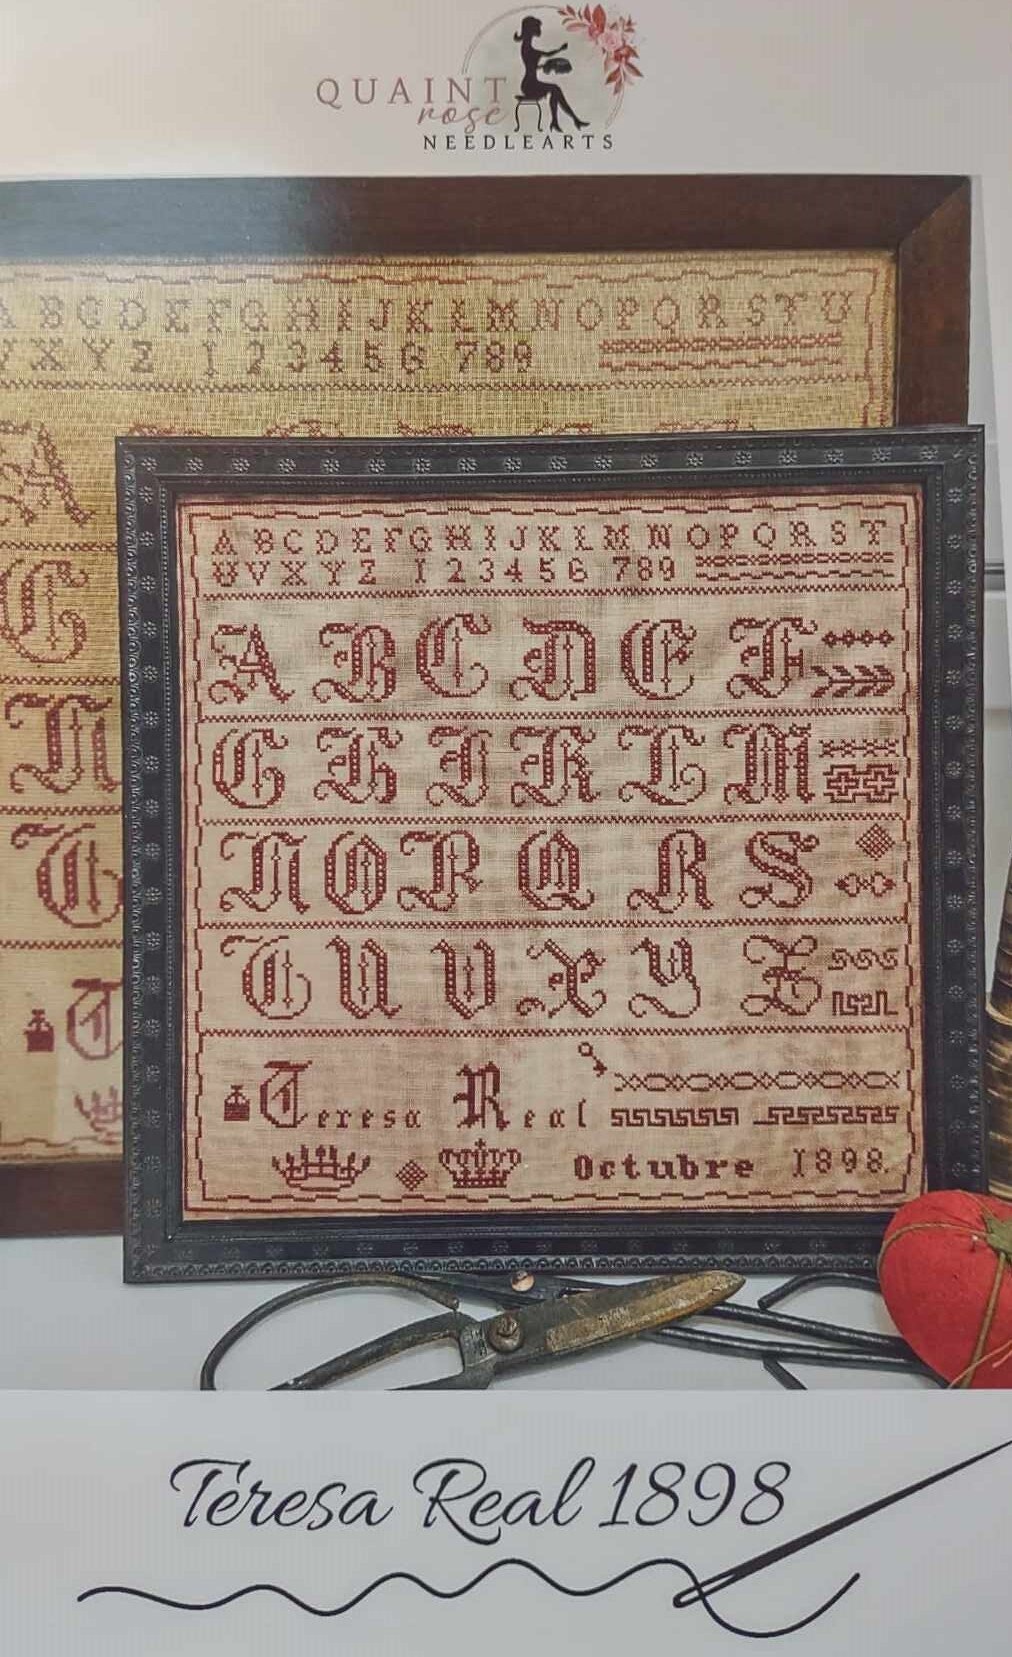 QUAINT
rose
NEEDLEARTS
A B C D E F G H I J K L M N O P Q R S T U
V X Y Z 1 2 3 4 5 6 7 8 9
A
G
N
T
T
A B C D E F G H I J K L M N O P Q R S T
U V X Y Z 1 2 3 4 5 6 7 8 9
A B C D E F
G H I K L M
N O P Q R S
T U V X Y Z
Teresa Real
Octubre 1898.
Teresa Real 1898